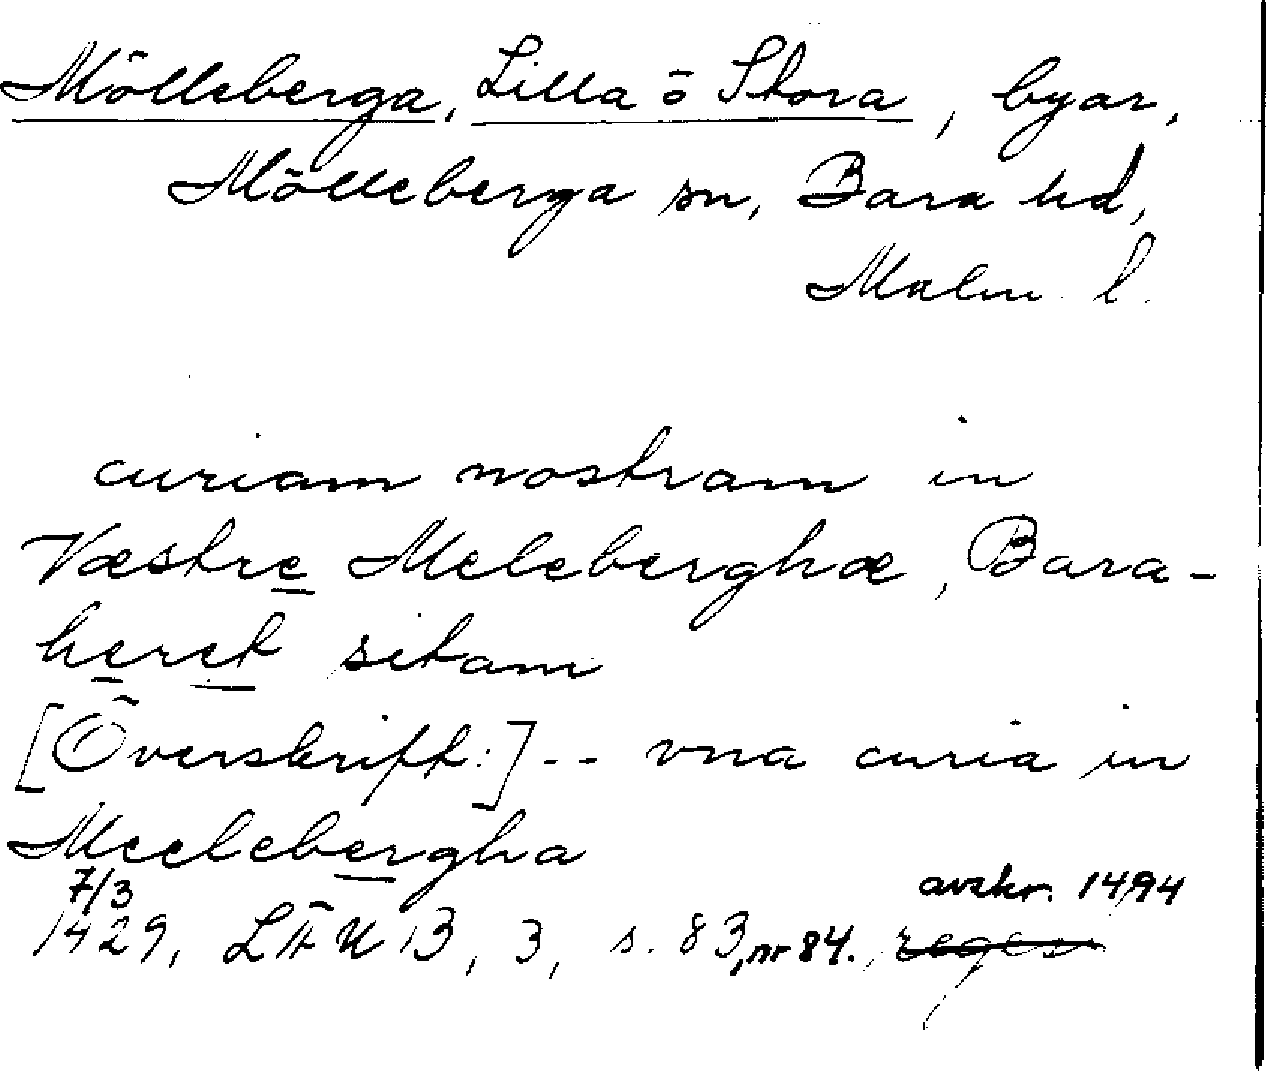 Mölleberga, Lilla o Stora, byar,
Mölleberga sn, Bara hd,
Malm. l.
curiam nostram in
Væstre Meleberghæ, Bara-
heret sitam
[Överskrift:] -- vna curia in
Meelebergha
7/3 avskr. 1494
1429, LÄUB, 3, s. 83, nr 84.